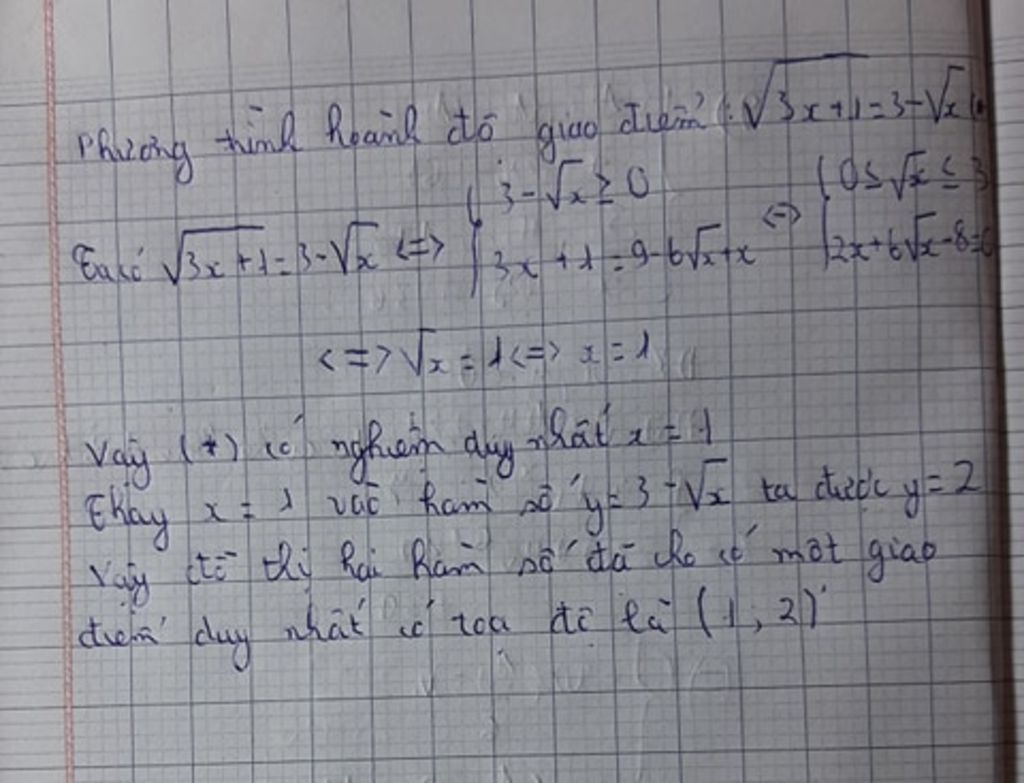 Phương trình hoành độ giao điểm : √3x+1 = 3-√x (*
{ 3-√x ≥ 0 { 0 ≤ √x ≤ 3
Ta có √3x+1 = 3-√x <=> { 3x+1 = 9-6√x+x <=> { 2x+6√x-8=0
<=> √x = 1 <=> x = 1
Vậy (*) có nghiệm duy nhất x = 1
Thay x = 1 vào hàm số y = 3-√x ta được y = 2
Vậy đồ thị hai hàm số đã cho có một giao
điểm duy nhất có toạ độ là (1, 2)